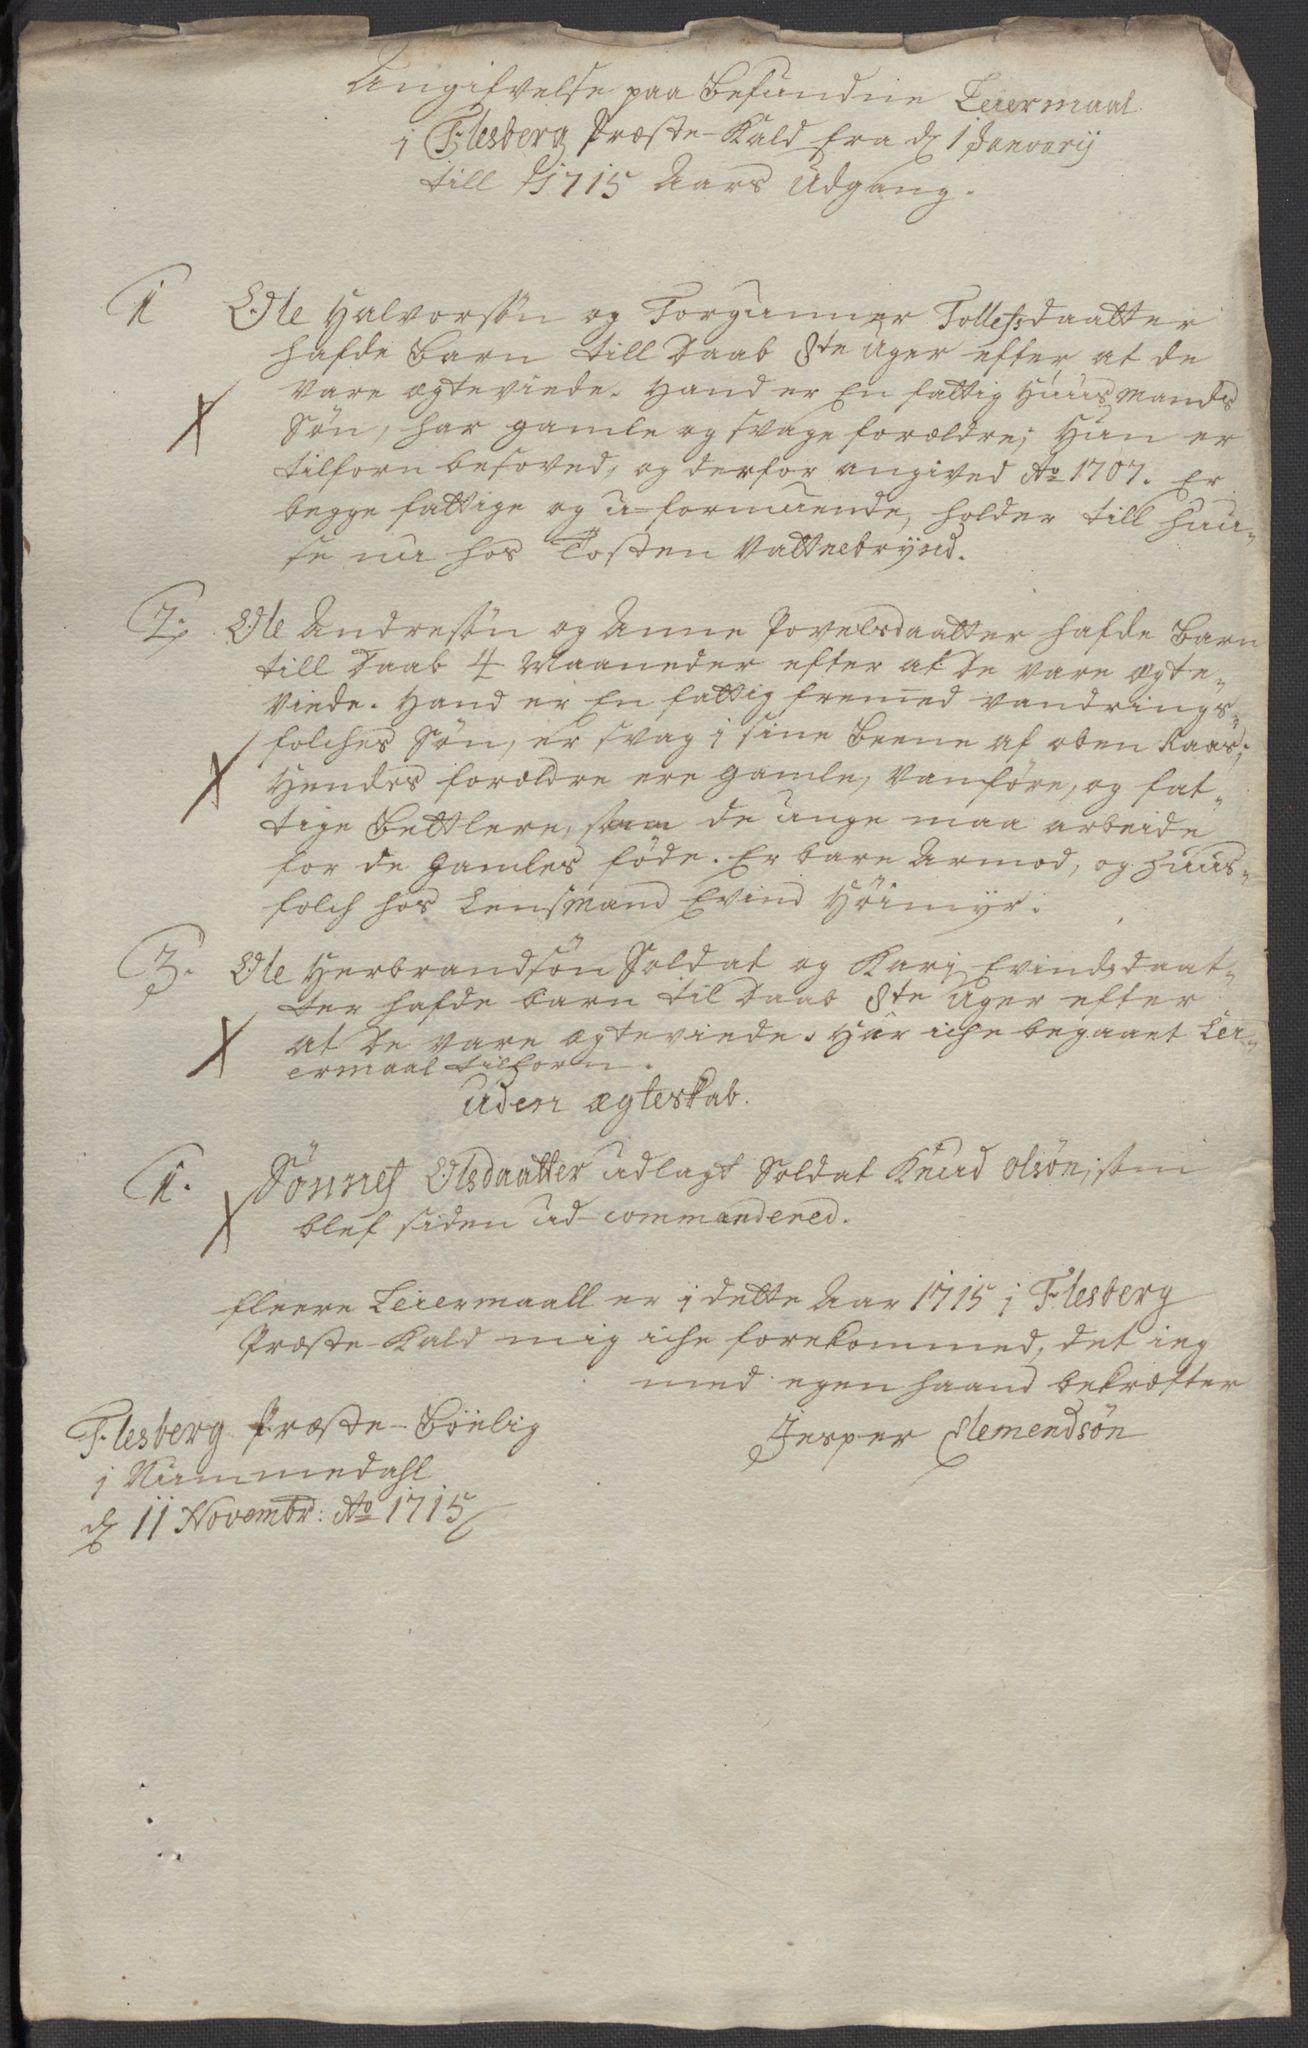 Angifvelse paa Befundne Leiermaal
i Flesberg Præste-Kald fra d 1 Januarij
till 1715 Aars Udgang.
1 Ole Halvorsøn og Torgunner Tollefsdaatter
hafde Barn till Daab 8te Uger efter, at de
vare ægteviede. Hand er En fattig Huusmands
Søn, har gamle og svage forældre; Hun er
tilforn besoved, og derfor angived Ao 1707. Er
begge fattige og u-formuende, holder till Huu-
se nu hos Tosten Vattnebrynd.
2. Ole Andresøn og Anne Povelsdaatter hafde Barn
till Daab 4 Maaneder efter at De vare ægte-
viede. Hand er En fattig fremmed vandrings-
folches Søn, er svag i sine Beene af oben Saar;
Hendes forældre ere gamle, vanføre, og fat-
tige Bettlere, saa de unge maa arbeide
for de Gamles føde. Er bare Armod, og Huus-
folch hos Lensmand Evind Høimyr.
3. Ole Herbrandsøn Soldat og Kari Evindsdaat-
ter hafde barn til Daab 8te Uger efter
at De vare ægteviede. Har iche begaaet Lei-
ermaal tilforn.
uden ægteskab.
1. Sønnef Olsdaatter udlagt Soldat Knud Olsøn, som
blef siden ud-commandered.
fleere Leiermaall er i dette Aar 1715 i Flesberg
Præste-Kald mig iche forekommed, det ieg
med egen haand bekræfter
Jesper Clemendsøn
Flesberg Præste-Bøelig
i Nummedahl
d 11 Novembr: Ao 1715